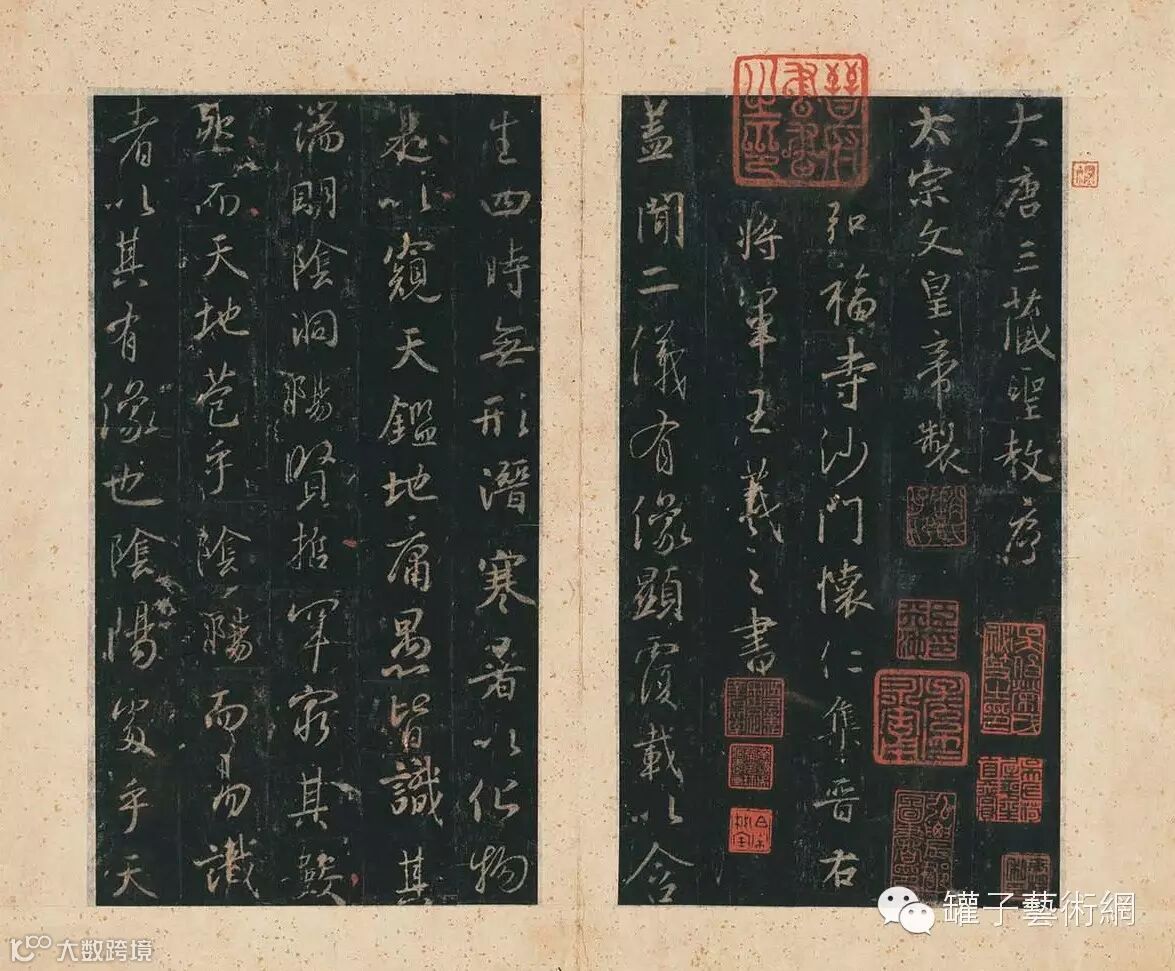 大唐三藏聖教序
太宗文皇帝製
弘福寺沙門懷仁集晉右
將軍王羲之書
蓋聞二儀有像顯覆載以含
生四時無形潛寒暑以化物
是以窺天鑑地庸愚皆識其
端明陰洞陽賢哲罕窮其數
然而天地苞乎陰陽而易識
者以其有像也陰陽處乎天
晉府書畫之印
罐子藝術網
大数跨境